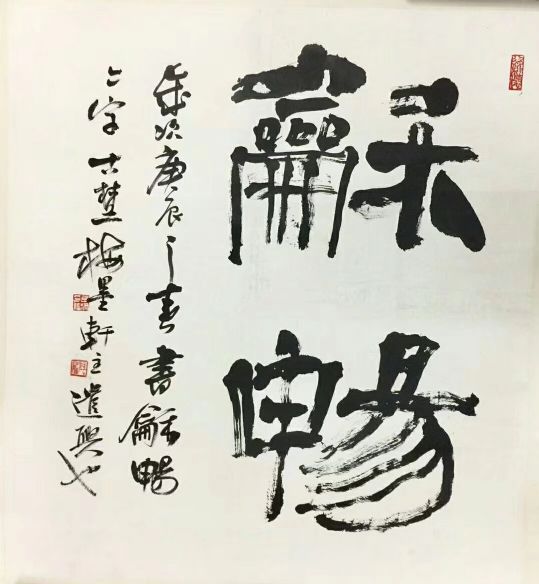 龢
暢
歲次庚辰之春書龢暢
二字古楚梅墨軒主遣興也